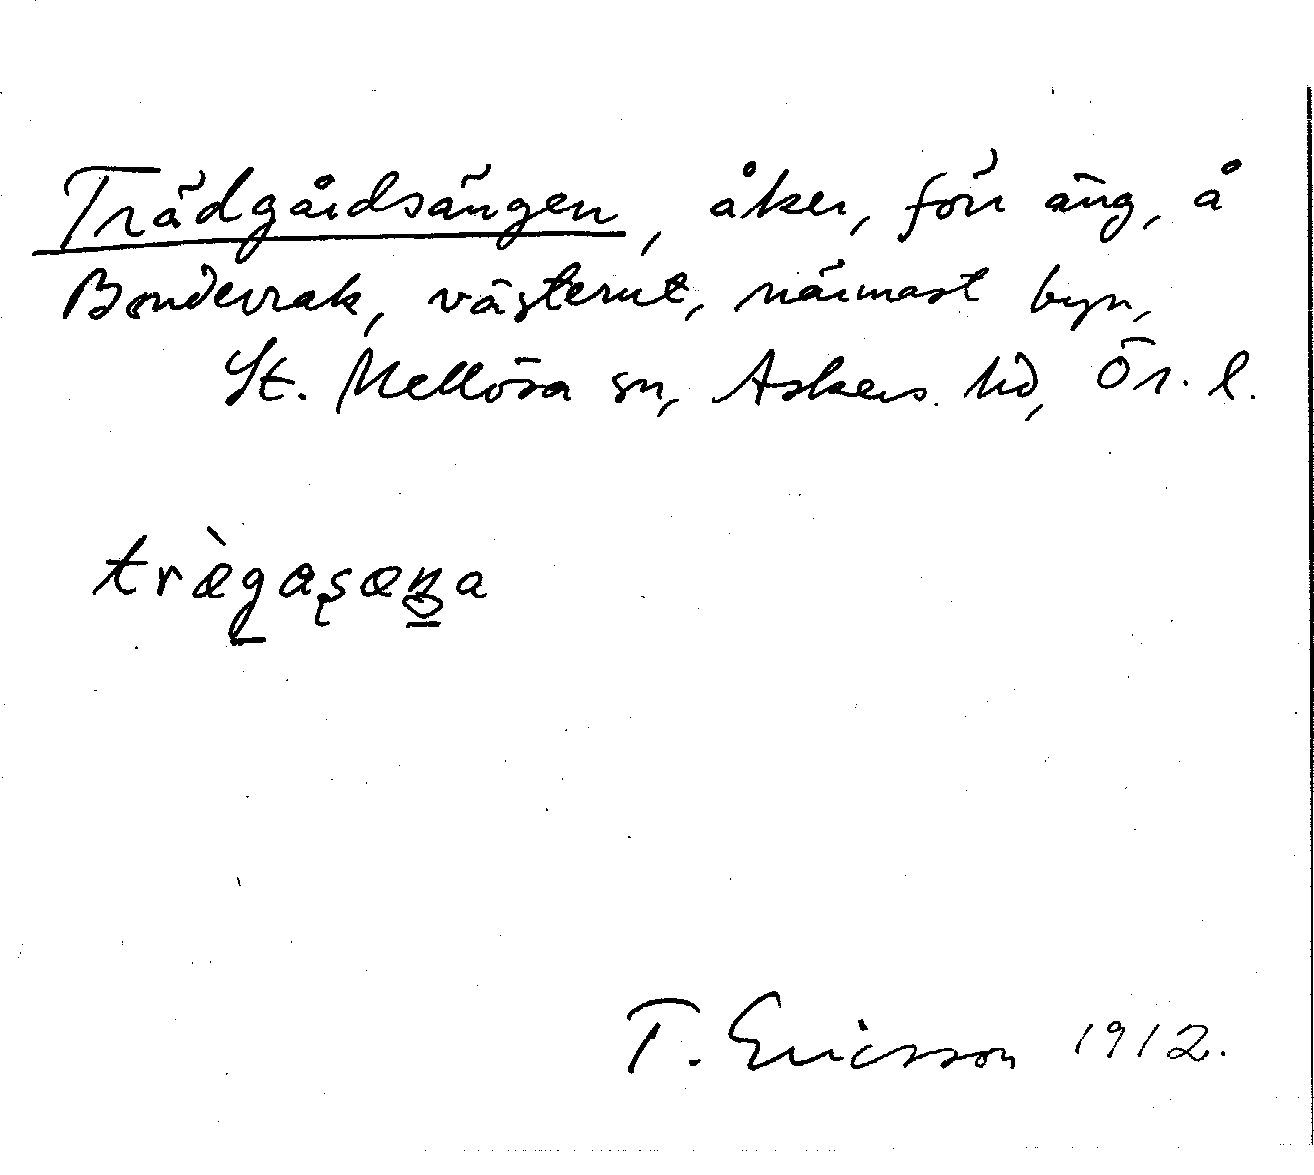 Trädgårdsängen, åker, förr äng, å
Bondevrak, västerut, närmast byn,
St. Mellösa sn, Askers hd, Ör. l.
træ̀gaʂæŋa
T. Ericsson 1912.